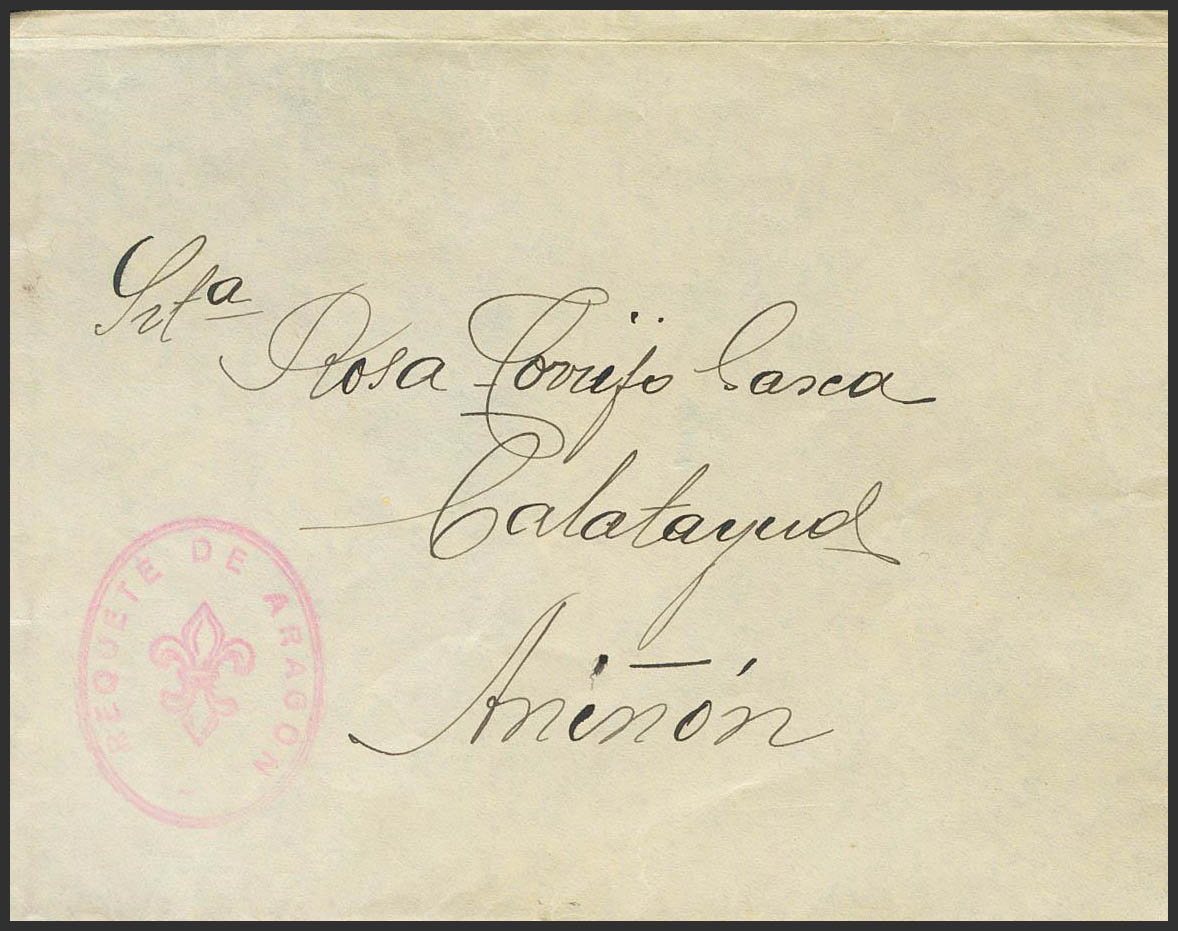 Srta Rosa Torrijo Gasca
Calatayud
Aniñón
REQUETE DE ARAGON